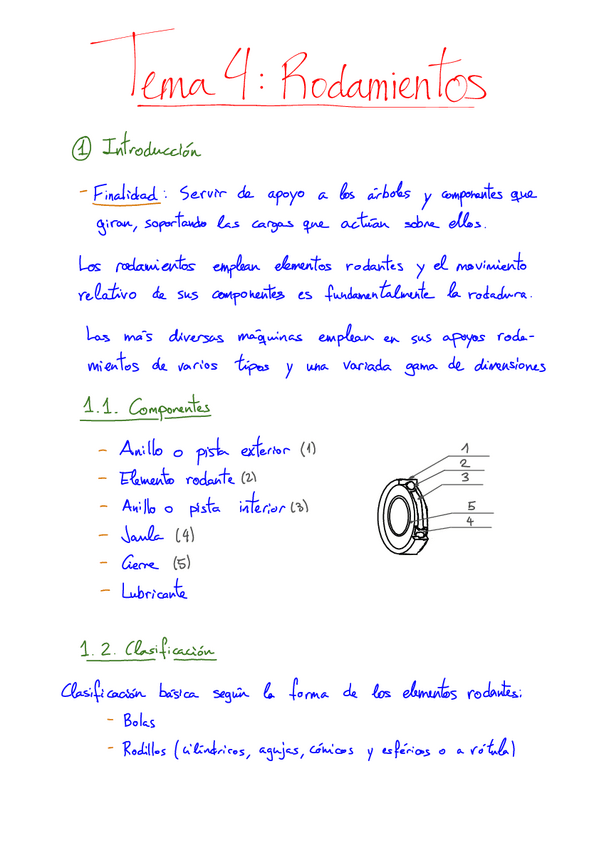 Tema 4: Rodamientos
① Introducción
- Finalidad: Servir de apoyo a los árboles y componentes que
giran, soportando las cargas que actúan sobre ellos.
Los rodamientos emplean elementos rodantes y el movimiento
relativo de sus componentes es fundamentalmente la rodadura.
Las más diversas máquinas emplean en sus apoyos roda-
mientos de varios tipos y una variada gama de dimensiones
1.1. Componentes
- Anillo o pista exterior (1)
- Elemento rodante (2)
- Anillo o pista interior (3)
- Jaula (4)
- Cierre (5)
- Lubricante
1
2
3
5
4
1.2. Clasificación
Clasificación básica según la forma de los elementos rodantes:
- Bolas
- Rodillos (cilíndricos, agujas, cónicos y esféricos o a rótula)